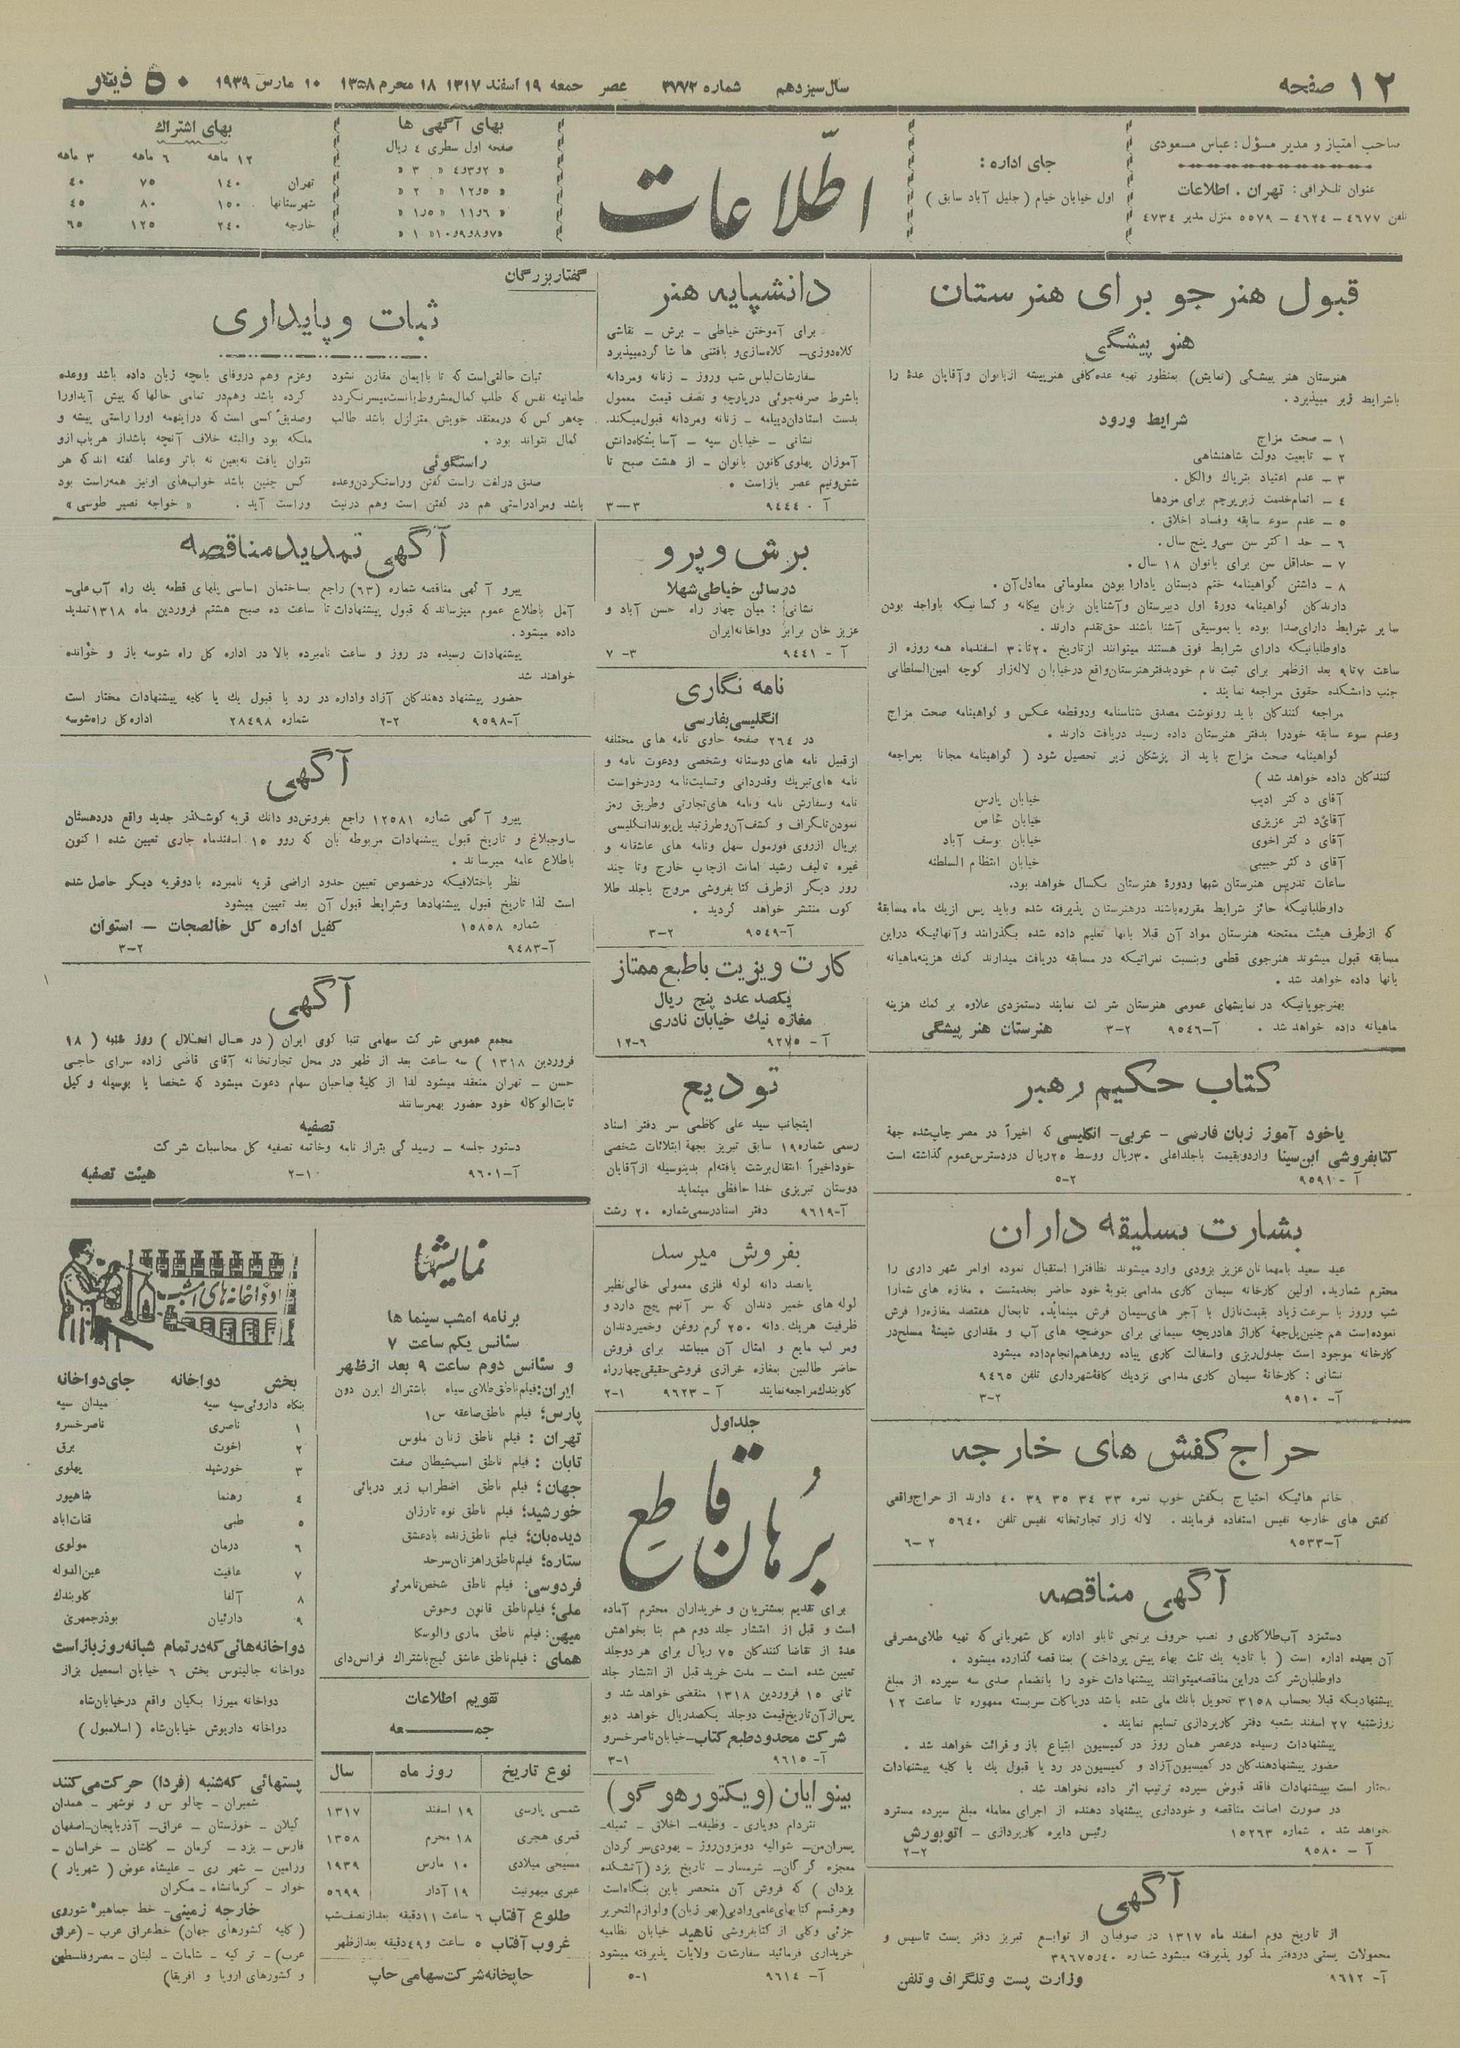 ۱۲ صفحه
سال سیزدهم شماره ۳۷۷۲ عصر جمعه ۱۹ اسفند ۱۳۱۷ ۱۸ محرم ۱۳۵۸ ۱۰ مارس ۱۹۳۹
۵۰ دینار
صاحب امتیاز و مدیر مسؤل : عباس مسعودی
عنوان تلگرافی : تهران . اطلاعات
تلفن ۴۶۷۷ - ۴۶۲۴ - ۵۵۷۹ منزل مدیر ۴۷۳۴
جای اداره :
اول خیابان خیام ( جلیل آباد سابق )
اطلاعات
بهای آگهی ها
صفحه اول سطری ۴ ریال
» ۲و۳و۴ » ۳ »
» ۵و۱۲ » ۲ »
» ۶و۱۱ » ۱٫۵ »
»۷و۸و۹و۱۰» ۱ »
بهای اشتراک
۱۲ ماهه ۶ ماهه ۳ ماهه
تهران ۱۴۰ ۷۵ ۴۰
شهرستانها ۱۵۰ ۸۰ ۴۵
خارجه ۲۴۰ ۱۲۵ ۶۵
قبول هنر جو برای هنرستان
هنر پیشگی
هنرستان هنر پیشگی (نمایش) بمنظور تهیه عده کافی هنرپیشه ازبانوان و آقایان عدهٔ را
باشرایط زیر میپذیرد .
شرایط ورود
۱ – صحت مزاج
۲ – تابعیت دولت شاهنشاهی
۳ – عدم اعتیاد بتریاک والکل .
۴ – اتمام خدمت زیرپرچم برای مردها
۵ – عدم سوء سابقه وفساد اخلاق .
۶ – حد اکثر سن سی و پنج سال .
۷ – حداقل سن برای بانوان ۱۸ سال .
۸ – داشتن گواهینامه ختم دبستان یادارا بودن معلوماتی معادل آن .
دارندگان گواهینامه دورهٔ اول دبیرستان وآشنایان بزبان بیگانه و کسانیکه باواجد بودن
سایر شرایط دارای صدا بوده یا بموسیقی آشنا باشند حق تقدم دارند .
داوطلبانیکه دارای شرایط فوق هستند میتوانند ازتاریخ ۲۰ تا ۳۰ اسفندماه همه روزه از
ساعت ۷ تا ۹ بعد ازظهر برای ثبت نام خود بدفترهنرستان واقع درخیابان لاله‌زار کوچه امین‌السلطانی
جنب دانشکده حقوق مراجعه نمایند .
مراجعه کنندگان باید رونوشت مصدق شناسنامه ودوقطعه عکس و گواهینامه صحت مزاج
وعدم سوء سابقه خودرا بدفتر هنرستان داده رسید دریافت دارند .
گواهینامه صحت مزاج باید از پزشکان زیر تحصیل شود ( گواهینامه مجانا بمراجعه
کنندگان داده خواهد شد )
آقای دکتر ادیب خیابان پارس
آقای دکتر عزیزی خیابان خاص
آقای دکتر اخوی خیابان یوسف آباد
آقای دکتر حبیبی خیابان انتظام السلطنه
ساعات تدریس هنرستان شبها ودورهٔ هنرستان یکسال خواهد بود.
داوطلبانیکه حائز شرایط مقرره باشند درهنرستان پذیرفته شده وباید پس ازیک ماه مسابقهٔ
که ازطرف هیئت ممتحنه هنرستان مواد آن قبلا بآنها تعلیم داده شده بگذرانند وآنهائیکه دراین
مسابقه قبول میشوند هنرجوی قطعی وبنسبت نمراتیکه در مسابقه دریافت میدارند کمک هزینه‌ماهیانه
بآنها داده خواهد شد .
بهنرجویانیکه در نمایشهای عمومی هنرستان شرکت نمایند دستمزدی علاوه بر کمک هزینه
ماهیانه داده خواهد شد . آ-۹۵۴۶ ۲-۳ هنرستان هنر پیشگی
کتاب حکیم رهبر
یاخود آموز زبان فارسی - عربی - انگلیسی که اخیراً در مصر چاپ شده جهة
کتابفروشی ابن سینا واردوبقیمت باجلداعلی ۳۰ریال ووسط ۲۵ریال دردسترس عموم گذاشته است
آ - ۹۵۹۱ ۲-۵
بشارت بسلیقه داران
عید سعید بامهمانان عزیز بزودی وارد میشوند نظافترا استقبال نموده اوامر شهر داری را
محترم شمارید. اولین کارخانه سیمان کاری مدامی بنوبهٔ خود حاضر بخدمتست . مغازه های شمارا
شب وروز با سرعت زیاد بقیمت‌نازل با آجر های‌سیمان فرش مینماید. تابحال هفتصد مغازه‌را فرش
نموده است هم چنین‌پل‌جهة گاراژ هادریچه سیمانی برای حوضچه های آب و مقداری شیشهٔ مسلح در
کارخانه موجود است جدول‌ریزی واسفالت کاری پیاده روهاهم‌انجام‌داده میشود
نشانی : کارخانهٔ سیمان کاری مدامی نزدیک کافهٔ‌شهرداری تلفن ۹۴۶۵
آ- ۹۵۱۰ ۲-۳
حراج کفش های خارجه
خانم هائیکه احتیاج بکفش خوب نمره ۳۳ ۳۴ ۳۵ ۳۹ ۴۰ دارند از حراج‌واقعی
کفش های خارجه نفیس استفاده فرمایند . لاله زار تجارتخانه نفیس تلفن ۵۶۴۰
آ-۹۵۳۳ ۲-۶
آگهی مناقصه
دستمزد آب‌طلاکاری و نصب حروف برنجی تابلو اداره کل شهربانی‌که تهیه طلای‌مصرفی
آن بعهده اداره است ( با تادیه یک ثلث بهاء پیش پرداخت ) بمناقصه گذارده میشود .
داوطلبان‌شرکت دراین مناقصه‌میتوانند پیشنهادات خود را بانضمام صدی سه سپرده از مبلغ
پیشنهادیکه قبلا بحساب ۳۱۵۸ تحویل بانک ملی شده باشد درپاکات سربسته ممهوره تا ساعت ۱۲
روزشنبه ۲۷ اسفند بشعبه دفتر کارپردازی تسلیم نمایند .
پیشنهادات رسیده درعصر همان روز در کمیسیون ابتیاع باز و قرائت خواهد شد .
حضور پیشنهاددهندگان در کمیسیون آزاد و کمیسیون در رد یا قبول یک یا کلیه پیشنهادات
مختار است بپیشنهادات فاقد قبوض سپرده ترتیب اثر داده نخواهد شد .
در صورت اصابت مناقصه و خودداری پیشنهاد دهنده از اجرای معامله مبلغ سپرده مسترد
نخواهد شد . شماره ۱۵۲۶۳ رئیس دایره کارپردازی - اتوبورش
آ - ۹۵۸۰ ۲-۲
آگهی
از تاریخ دوم اسفند ماه ۱۳۱۷ در صوفیان از توابع تبریز دفتر پست تاسیس و
محمولات پستی دردفتر مذکور پذیرفته میشود شماره ۳۹۶۷۵٫۴۰
آ- ۹۶۱۲ وزارت پست وتلگراف وتلفن
دانشپایه هنر
برای آموختن خیاطی – برش – نقاشی
کلاه‌دوزی – کلاه‌سازی و بافتنی ها شاگردمیپذیرد
سفارشات لباس شب وروز – زنانه ومردانه
باشرط صرفه‌جوئی درپارچه و نصف قیمت معمول
بدست استادان دیپلمه – زنانه ومردانه قبول میکند.
نشانی – خیابان سپه – آسایشگاه دانش
آموزان پهلوی کانون بانوان – از هشت صبح تا
شش‌ونیم عصر بازاست .
آ - ۹۴۴۴ ۳-۳
برش و پرو
درسالن خیاطی شهلا
نشانی : میان چهار راه حسن آباد و
عزیز خان برابر دواخانه ایران
آ - ۹۴۴۱ ۳- ۷
نامه نگاری
انگلیسی بفارسی
در ۲۶۴ صفحه حاوی نامه های مختلفه
ازقبیل نامه های دوستانه وشخصی ودعوت نامه و
نامه های‌تبریک وقدردانی وتسلیت‌نامه ودرخواست
نامه وسفارش نامه ونامه های‌تجارتی وطریق رمز
نمودن‌تلگراف و کشف آن وطرز تبدیل پوند انگلیسی
بریال ازروی فورمول سهل ونامه های عاشقانه و
غیره تالیف رشید امانت ازچاپ خارج وتا چند
روز دیگر ازطرف کتابفروشی مروج باجلد طلا
کوب منتشر خواهد گردید .
آ-۹۵۴۹ ۲-۳
کارت ویزیت باطبع ممتاز
یکصد عدد پنج ریال
مغازه نیک خیابان نادری
آ - ۹۲۷۵ ۶-۱۲
تودیع
اینجانب سید علی کاظمی سر دفتر اسناد
رسمی شماره۱۹ سابق تبریز بجهة ابتلائات شخصی
خوداخیراً انتقال‌برشت یافته‌ام بدینوسیله ازآقایان
دوستان تبریزی خدا حافظی مینماید
آ-۹۶۱۹ دفتر اسنادرسمی‌شماره ۲۰ رشت
بفروش میرسد
پانصد دانه لوله فلزی معمولی خالی نظیر
لوله های خمیر دندان که سر آنهم پیچ دارد و
ظرفیت هریک دانه ۲۵۰ گرم روغن وخمیردندان
ومرکب مایع و امثال آن میباشد برای فروش
حاضر طالبین بمغازه خرازی فروشی‌حقیقی‌چهارراه
کلوبندک‌مراجعه‌نمایند آ - ۹۶۲۳ ۱-۲
جلد اول
برهان قاطع
برای تقدیم بمشتریان و خریداران محترم آماده
است و قبل از انتشار جلد دوم هم بنا بخواهش
عدهٔ از تقاضا کنندگان ۷۵ ریال برای هر دوجلد
تعیین شده است – مدت خرید قبل از انتشار جلد
ثانی ۱۵ فروردین ۱۳۱۸ منقضی خواهد شد و
پس‌ازآن تاریخ‌قیمت دوجلد یکصدریال خواهد دبو
شرکت محدودطبع کتاب-خیابان‌ناصرخسرو
آ- ۹۶۱۵ ۱-۳
بینوایان (ویکتورهوگو)
نتردام دوپاری - وظیفه - اخلاق - تمیله-
پسران‌من- شوالیه دومزون‌روژ - یهودی‌سرگردان
معجزه گرگان- شرمسار - تاریخ یزد (آتشکده
یزدان ) که فروش آن منحصر باین بنگاه‌است
وهرقسم کتابهای علمی‌وادبی(بهرزبان) ولوازم‌التحریر
جزئی وکلی از کتابفروشی ناهید خیابان نظامیه
خریداری فرمائید سفارشات ولایات پذیرفته میشود
آ- ۹۶۱۴ ۱-۵
گفتاربزرگان
ثبات وپایداری
ثبات حالتی‌است که تا باایمان مقارن نشود
طمانینه نفس که طلب کمال‌مشروط بآنست‌میسرنگردد
چه‌هر کس که درمعتقد خویش متزلزل باشد طالب
کمال نتواند بود .
راستگوئی
صدق درلغت راست گفتن وراستکردن‌وعده
باشد ومراد راستی هم در گفتن است وهم درنیت
وعزم وهم دروفای بآنچه زبان داده باشد ووعده
کرده باشد وهم در تمامی حالها که پیش آیداورا
وصدیق کسی است که دراینهمه اورا راستی پیشه و
ملکه بود والبته خلاف آنچه باشداز هرباب‌ازو
نتوان یافت نه‌بعین نه باثر وعلما گفته اندکه هر
کس چنین باشد خواب‌های اونیز همه‌راست بود
وراست آید . « خواجه نصیر طوسی »
آگهی تمدید مناقصه
پیرو آگهی مناقصه شماره (۶۳) راجع بساختمان اساسی پلهای قطعه یک راه آب‌علی-
آمل باطلاع عموم میرساند که قبول پیشنهادات تا ساعت ده صبح هشتم فروردین ماه ۱۳۱۸ تمدید
داده میشود.
پیشنهادات رسیده در روز و ساعت نامبرده بالا در اداره کل راه شوسه باز و خوانده
خواهند شد
حضور پیشنهاد دهندگان آزاد واداره در رد یا قبول یک یا کلیه پیشنهادات مختار است
آ-۹۵۹۸ ۲-۲ شماره ۲۸۴۹۸ اداره‌کل راه‌شوسه
آگهی
پیرو آگهی شماره ۱۲۵۸۱ راجع بفروش‌دو دانگ قریه کوشکذر جدید واقع دردهستان
ساوجبلاغ و تاریخ قبول پیشنهادات مربوطه بآن که روو ۱۵ اسفندماه جاری تعیین شده اکنون
باطلاع عامه میرساند .
نظر باختلافیکه درخصوص تعیین حدود اراضی قریه نامبرده بادوقریه دیگر حاصل شده
است لذا تاریخ قبول پیشنهادها وشرایط قبول آن بعد تعیین میشود
شماره ۱۵۸۵۸ کفیل اداره کل خالصجات – استوان
آ-۹۴۸۳ ۲-۳
آگهی
مجمع عمومی شرکت سهامی تنباکوی ایران ( در حال انحلال ) روز شنبه ( ۱۸
فروردین ۱۳۱۸ ) سه ساعت بعد از ظهر در محل تجارتخانه آقای قاضی زاده سرای حاجی
حسن – تهران منعقد میشود لذا از کلیهٔ صاحبان سهام دعوت میشود که شخصاً یا بوسیله وکیل
ثابت‌الوکاله خود حضور بهمرسانند
تصفیه
دستور جلسه – رسیدگی بتراز نامه وخاتمه تصفیه کل محاسبات شرکت
آ-۹۶۰۱ ۱۰-۲ هیئت تصفیه
نمایشها
برنامه امشب سینما ها
سئانس یکم ساعت ۷
و سئانس دوم ساعت ۹ بعد ازظهر
ایران: فیلم‌ناطق‌طلای سیاه باشتراک ایرن دون
پارس: فیلم ناطق‌صاعقه س۱
تهران : فیلم ناطق زنان ملوس
تابان : فیلم ناطق اسب‌شیطان صفت
جهان: فیلم ناطق اضطراب زیر دریائی
خورشید: فیلم ناطق نوه تارزان
دیده‌بان: فیلم ناطق‌زنده بادعشق
ستاره: فیلم‌ناطق‌راهزنان‌سرحد
فردوسی: فیلم ناطق شخص‌نامرئی
ملی: فیلم‌ناطق قانون وحوش
میهن: فیلم ناطق ماری والوسکا
همای : فیلم‌ناطق عاشق گیج‌باشتراک فرانس‌دای
تقویم اطلاعات
جمعه
نوع تاریخ روز ماه سال
شمسی پارسی ۱۹ اسفند ۱۳۱۷
قمری هجری ۱۸ محرم ۱۳۵۸
مسیحی میلادی ۱۰ مارس ۱۹۳۹
عبری میهونیت ۱۹ آدار ۵۶۹۹
طلوع آفتاب ۶ ساعت ۱۱دقیقه بعدازنصف‌شب
غروب آفتاب ۵ ساعت و۴۹دقیقه بعدازظهر
چاپخانه شرکت سهامی چاپ
دواخانه‌های امشب
بخش دواخانه جای‌دواخانه
بنگاه داروئی سپه سپه میدان سپه
۱ ناصری ناصرخسرو
۲ اخوت برق
۳ خورشید پهلوی
۴ رهنما شاهپور
۵ طبی قنات‌اباد
۶ درمان مولوی
۷ عافیت عین‌الدوله
۸ آلفا کلوبندک
۹ دارئیان بوذرجمهری
دواخانه‌هائی که‌درتمام شبانه روزبازاست
دواخانه جالینوس بخش ۶ خیابان اسمعیل بزاز
دواخانه میرزا یکیان واقع درخیابان‌شاه
دواخانه داریوش خیابان‌شاه ( اسلامبول )
پستهائی که‌شنبه (فردا) حرکت‌می‌کنند
شمیران – چالوس و نوشهر – همدان
گیلان – خوزستان – عراق- آذربایجان-اصفهان
فارس – یزد – کرمان – کاشان – خراسان –
ورامین – شهر ری – علیشاه عوض ( شهریار )
خوار – کرمانشاه - مکران
خارجه زمینی- خط جماهیر شوروی
( کلیه کشورهای جهان) خط‌عراق عرب -(عراق
عرب)- ترکیه - شامات - لبنان - مصروفلسطین
و کشورهای اروپا و افریقا)